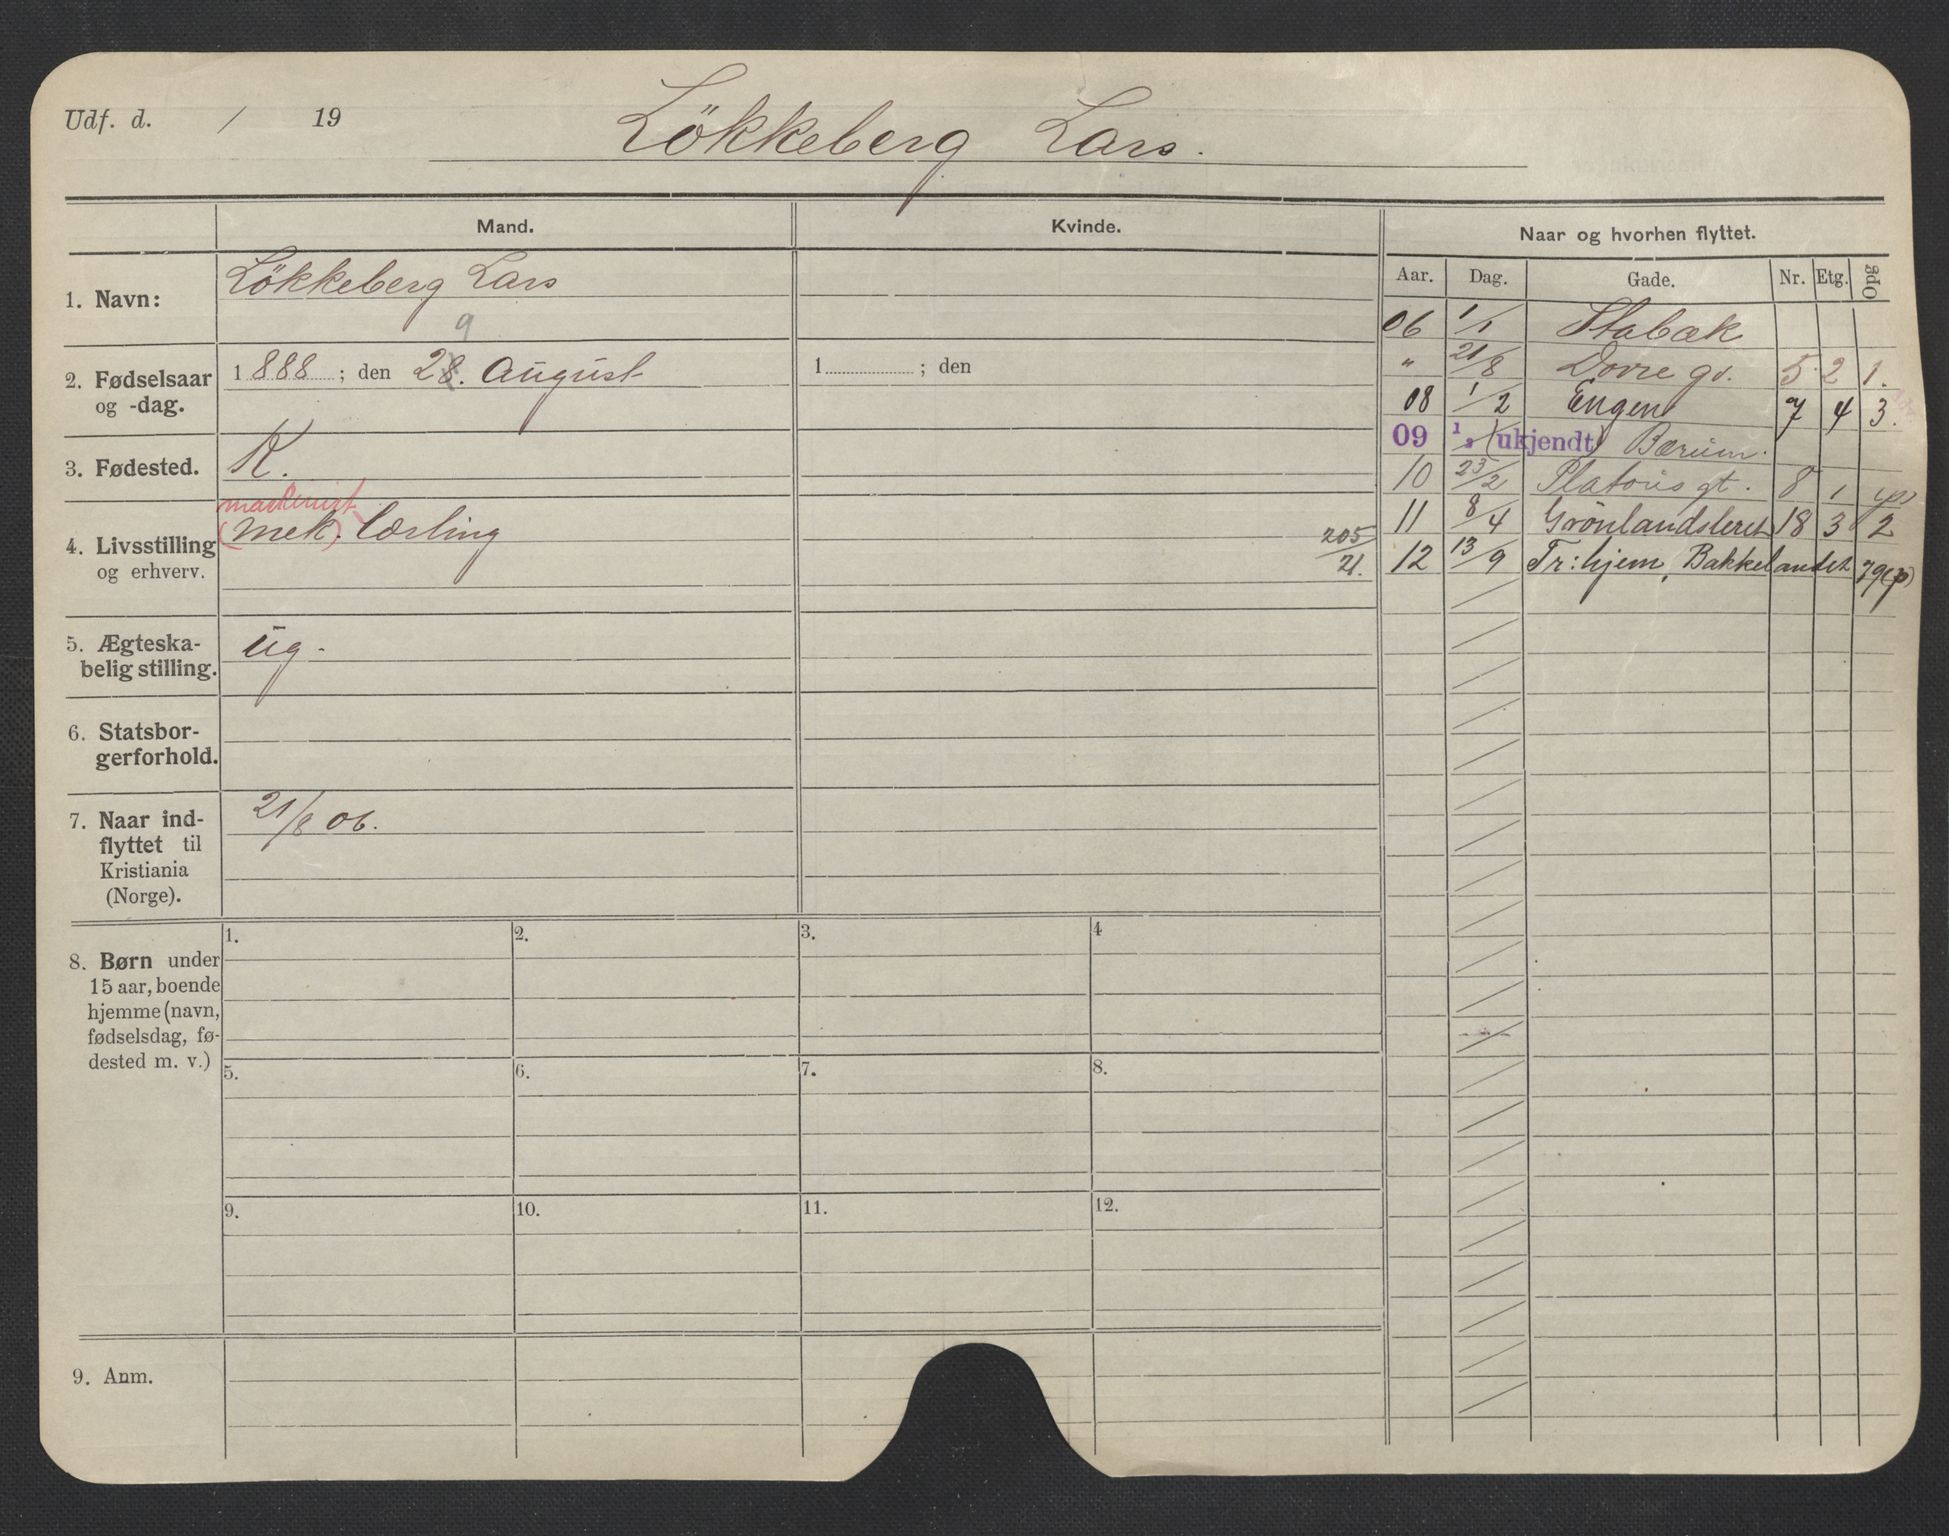 Udf. d. / 19
Lökkeberg Lars.
Mand.
Kvinde.
Naar og hvorhen flyttet.
Aar. Dag. Gade. Nr. Etg. Opg
1. Navn:
Lökkeberg Lars
2. Fødselsaar og -dag.
9
1 888 ; den 28. August
1 ; den
3. Fødested.
K.
4. Livsstilling og erhverv.
maskinist
(mek.) Lærling
205/21.
5. Ægteska-
belig stilling.
ug.
6. Statsbor-
gerforhold.
7. Naar ind-
flyttet til
Kristiania
(Norge).
21/8 06.
8. Børn under
15 aar, boende
hjemme (navn,
fødselsdag, fø-
dested m. v.)
1. 2. 3. 4
5. 6. 7. 8.
9. 10. 11. 12.
9. Anm.
06 1/1 Stabæk
" 21/8 Dovre gd. 5 2 1.
08 1/2 Engen 7 4 3.
09 1/2 (ukjendt) Bærum.
10 23/2 Platous gt. 8 1 (p)
11 8/4 Grönlandsleret 18 3 2
12 13/9 Tr:hjem, Bakkelandet 79 (p)